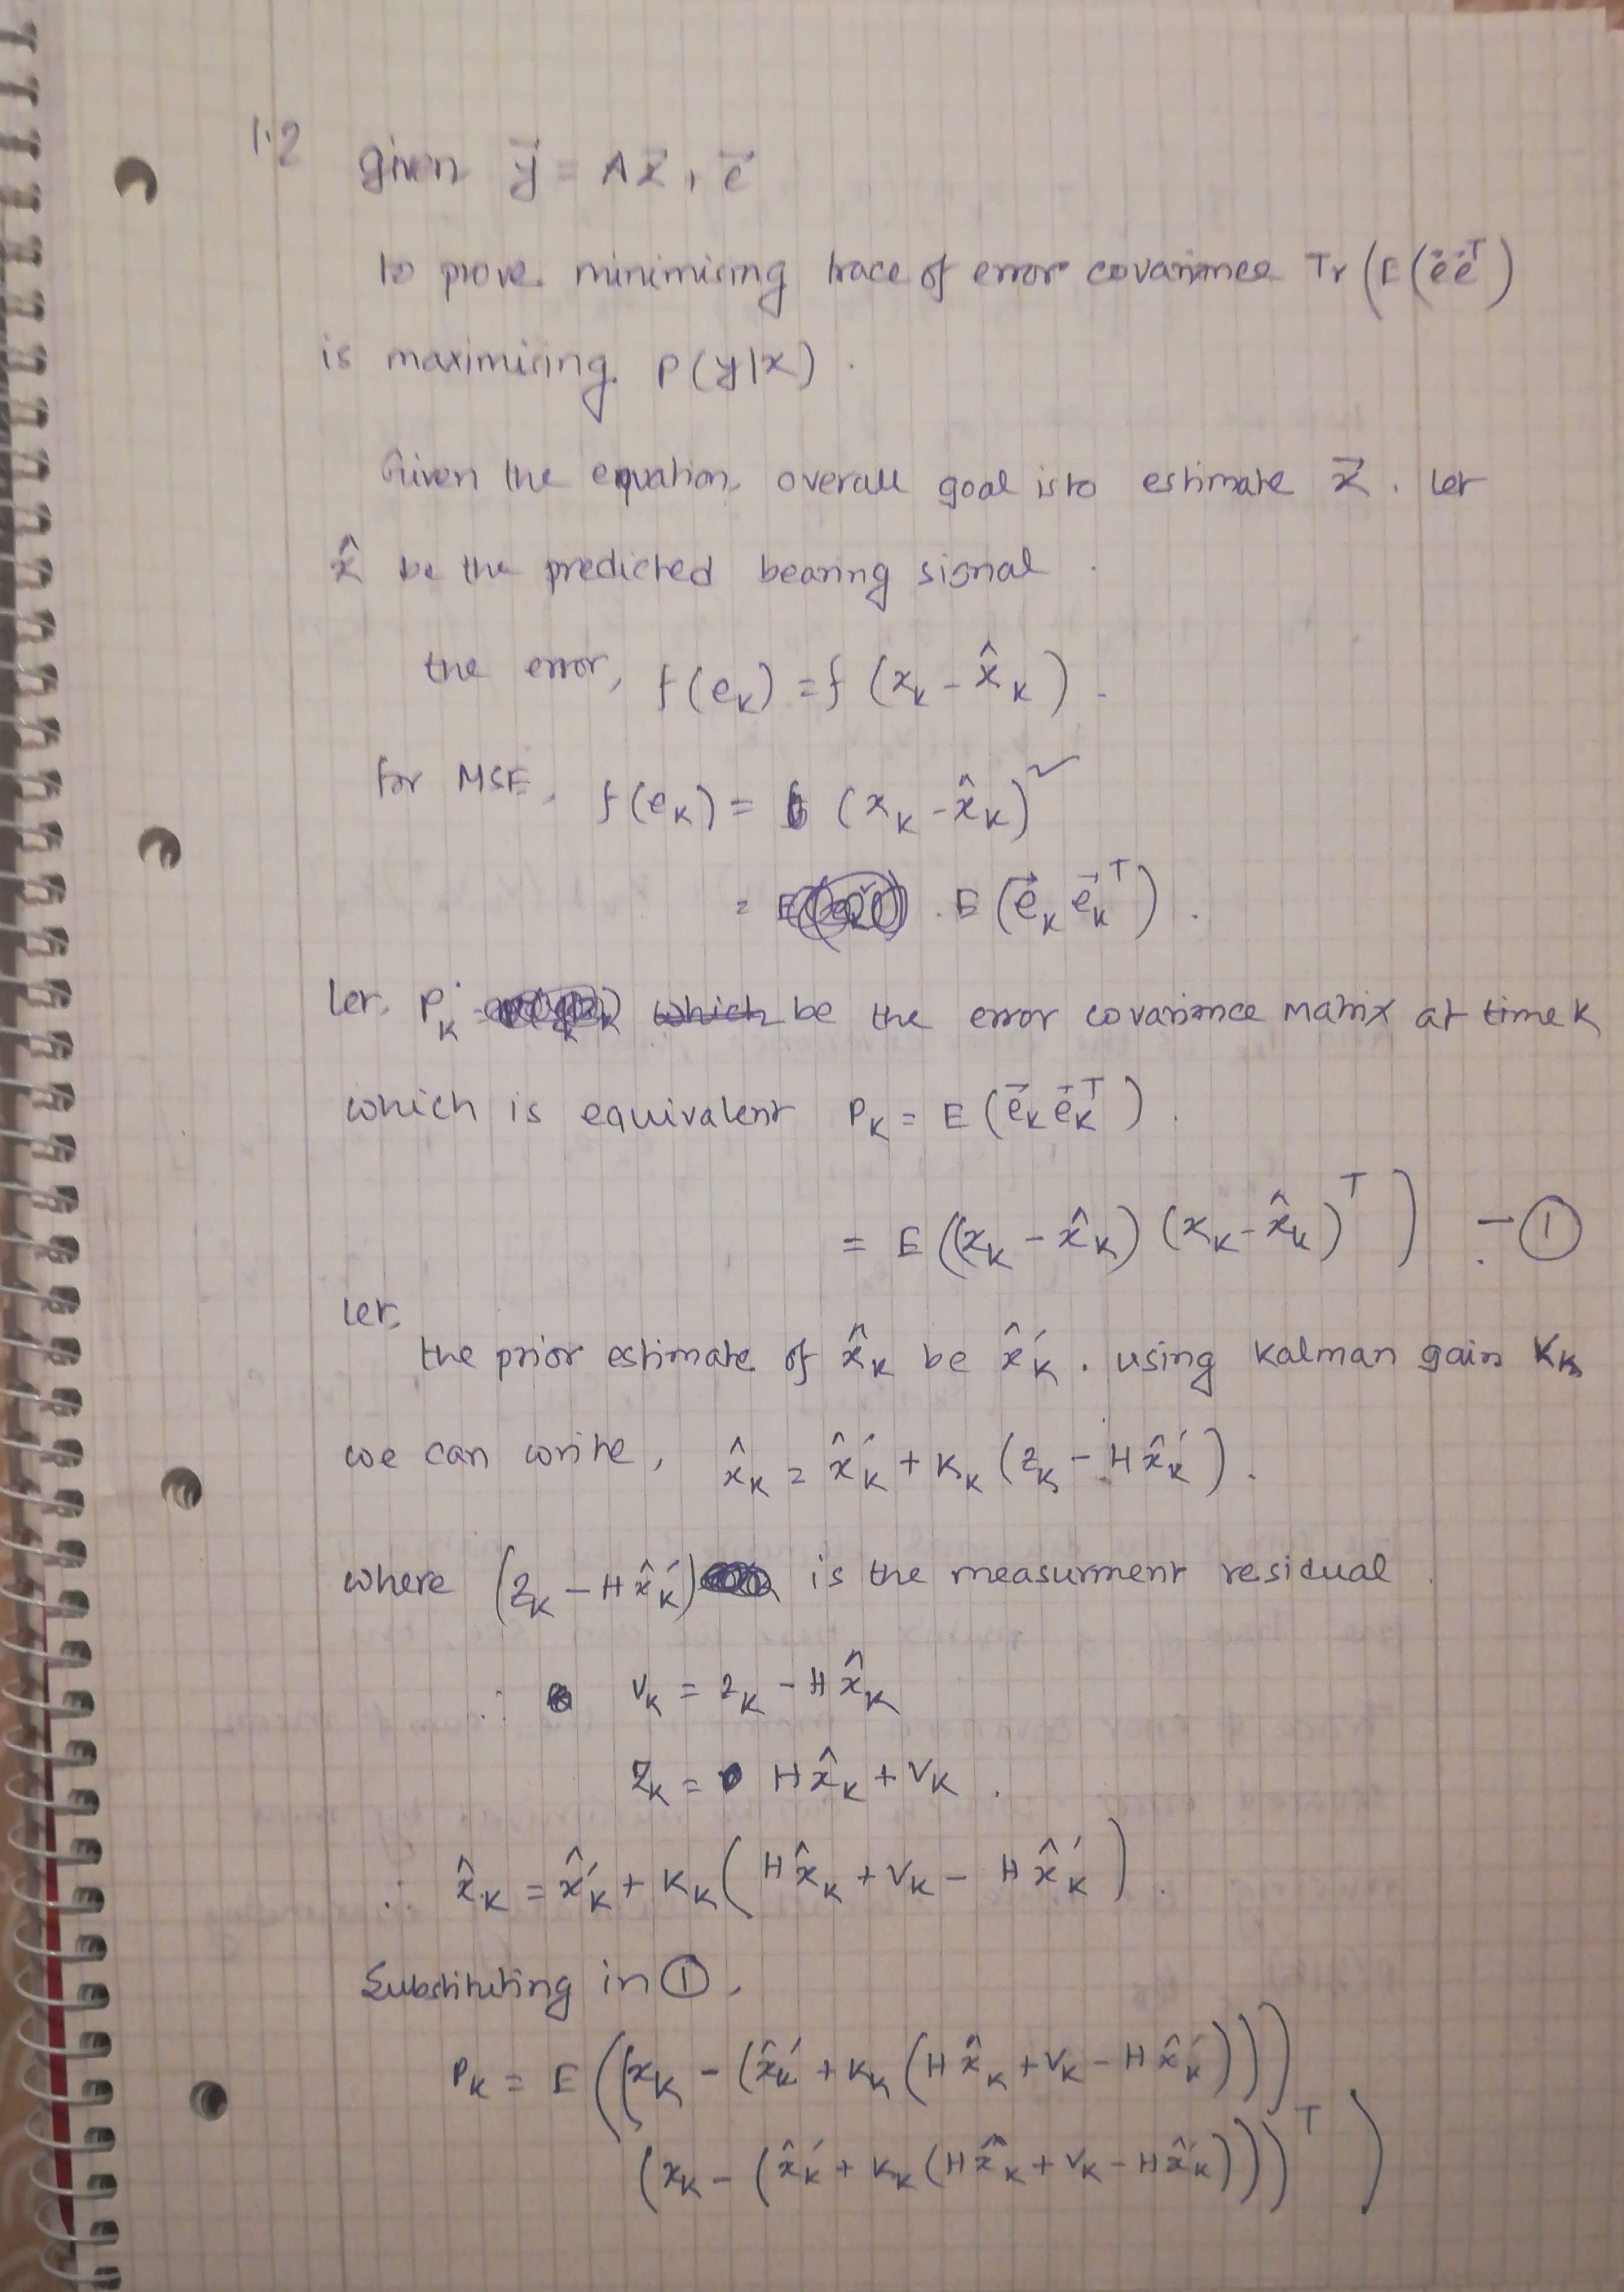 1.2 given y⃗ = Ax⃗ + e⃗
to prove minimising trace of error covariance Tr(E(e⃗e⃗ᵀ)
is maximising P(y|x).
Given the equation, overall goal is to estimate x⃗. Let
x̂ be the predicted bearing signal.
the error, f(e_K) = f(x_K - x̂_K).
for MSE, f(e_K) = (x_K - x̂_K)²
= E(e⃗_K e⃗_Kᵀ).
Let, P_K be the error covariance matrix at time K
which is equivalent P_K = E(e⃗_K e⃗_Kᵀ).
= E((x_K - x̂_K)(x_K - x̂_K)ᵀ) - ①
Let,
the prior estimate of x̂_K be x̂'_K. using Kalman gain K_K
we can write, x̂_K = x̂'_K + K_K(z_K - Hx̂'_K).
where (z_K - Hx̂'_K) is the measurment residual.
∴ v_K = z_K - Hx̂_K
z_K = Hx̂_K + v_K.
∴ x̂_K = x̂'_K + K_K(Hx̂_K + v_K - Hx̂'_K).
Substituting in ①,
P_K = E((x_K - (x̂'_K + K_K(Hx̂_K + v_K - Hx̂'_K)))
(x_K - (x̂'_K + K_K(Hx̂_K + v_K - Hx̂'_K)))ᵀ)